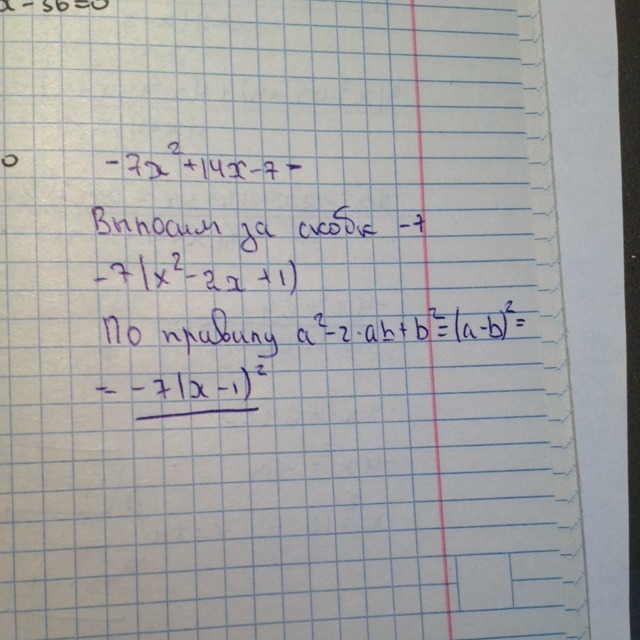 x - 36 = 0
-7x²+14x-7 -
Выносим за скобк -7
-7(x²-2x+1)
По правилу a²-2·ab+b²=(a-b)²=
= -7(x-1)²